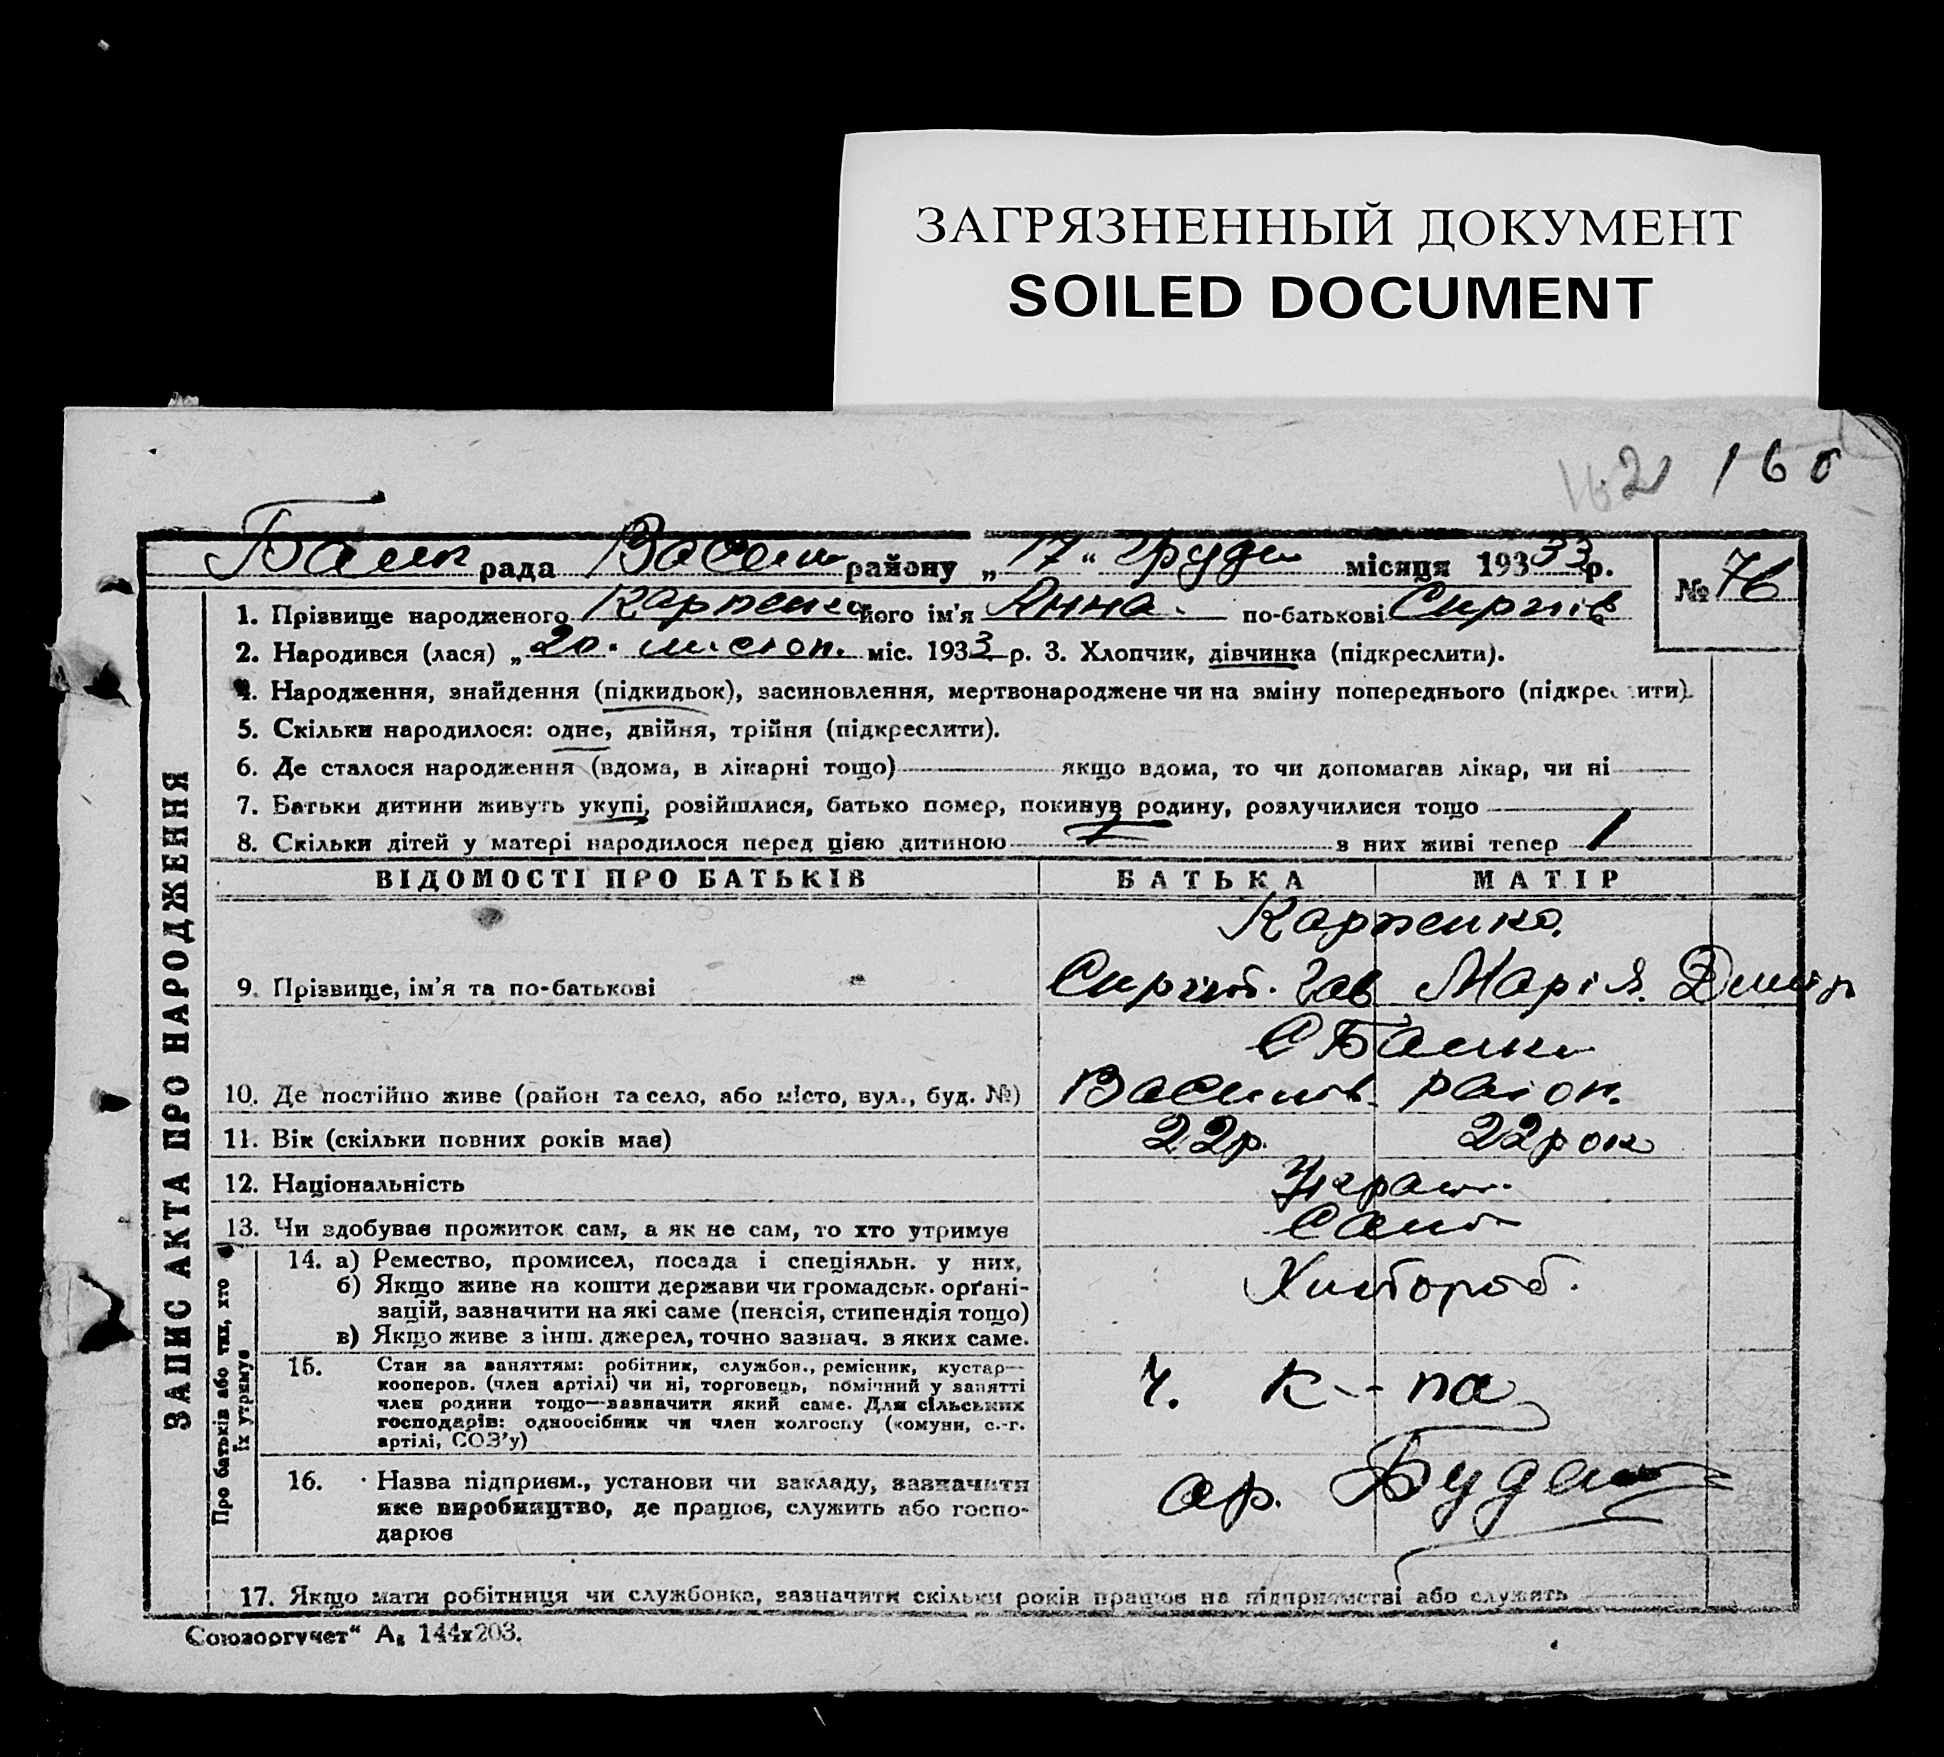 ЗАГРЯЗНЕННЫЙ ДОКУМЕНТ
SOILED DOCUMENT
162 160
Балк рада Васили району „17“ Грудн місяця 193 33 р. № 76
ЗАПИС АКТА ПРО НАРОДЖЕННЯ
1. Прізвище народженого Карпенко його ім'я Анна. по-батькові Сиргіів
2. Народився (лася) „20. листоп. міс. 1933 р. 3. Хлопчик, дівчинка (підкреслити).
4. Народження, знайдення (підкидьок), засиновлення, мертвонароджене чи на зміну попереднього (підкреслити).
5. Скільки народилося: одне, двійня, трійня (підкреслити).
6. Де сталося народження (вдома, в лікарні тощо) якщо вдома, то чи допомагав лікар, чи ні
7. Батьки дитини живуть укупі, розійшлися, батько помер, покинув родину, розлучилися тощо
8. Скільки дітей у матері народилося перед цією дитиною 1 з них живі тепер 1
ВІДОМОСТІ ПРО БАТЬКІВ БАТЬКА МАТІР
Карпенко.
9. Прізвище, ім'я та по-батькові Сиргій. Гав Марія. Дмитр
С Балки
10. Де постійно живе (район та село, або місто, вул., буд. №) Василів. район.
11. Вік (скільки повних років має) 22 р. 22 рок
12. Національність Україн.
13. Чи здобуває прожиток сам, а як не сам, то хто утримує Сами
Про батьків або тих, хто їх утримує
14. а) Ремество, промисел, посада і спеціяльн. у них,
б) Якщо живе на кошти держави чи громадськ. орґані-
зацій, зазначити на які саме (пенсія, стипендія тощо) Хлібороб.
в) Якщо живе з інш. джерел, точно зазнач. з яких саме.
15. Стан за заняттям: робітник, службов., ремісник, кустар—
кооперов. (член артілі) чи ні, торговець, помічний у занятті
член родини тощо—зазначити який саме. Для сільських Ч. к--па
господарів: одноосібник чи член колгоспу (комуни, с.-г.
артілі, СОЗ'у)
16. Назва підприєм., установи чи закладу, зазначити
яке виробництво, де працює, служить або госпо- ар. Будьон
дарює
17. Якщо мати робітниця чи службовка, зазначити скільки років працює на підприємстві або служить
Союзоргучет“ А₅ 144х203.